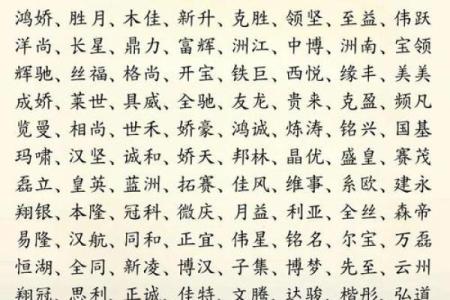 鸿娇、胜月、木佳、新升、克胜、领坚、至益、伟跃
洋尚、长星、鼎力、富辉、洲江、中博、洲南、宝领
辉驰、丝福、格尚、开宝、铁巨、西悦、缘丰、美美
成娇、莱世、具威、全驰、友龙、贵来、克盈、频凡
览曼、相尚、世禾、娇豪、鸿诚、炼涛、铭兴、国基
玛啸、汉坚、诚和、娇天、邦林、晶优、盛皇、赛茂
磊立、皇英、蓝洲、拓赛、佳风、维事、系欧、建永
翔银、本隆、冠科、微庆、月益、利亚、全丝、森帝
易隆、汉航、同和、正宜、伟星、铭名、尔宝、万磊
恒湖、全同、新凌、博汉、子集、博梦、先至、云州
翔冠、思利、正诚、佳特、文腾、达骏、楷彤、弘道